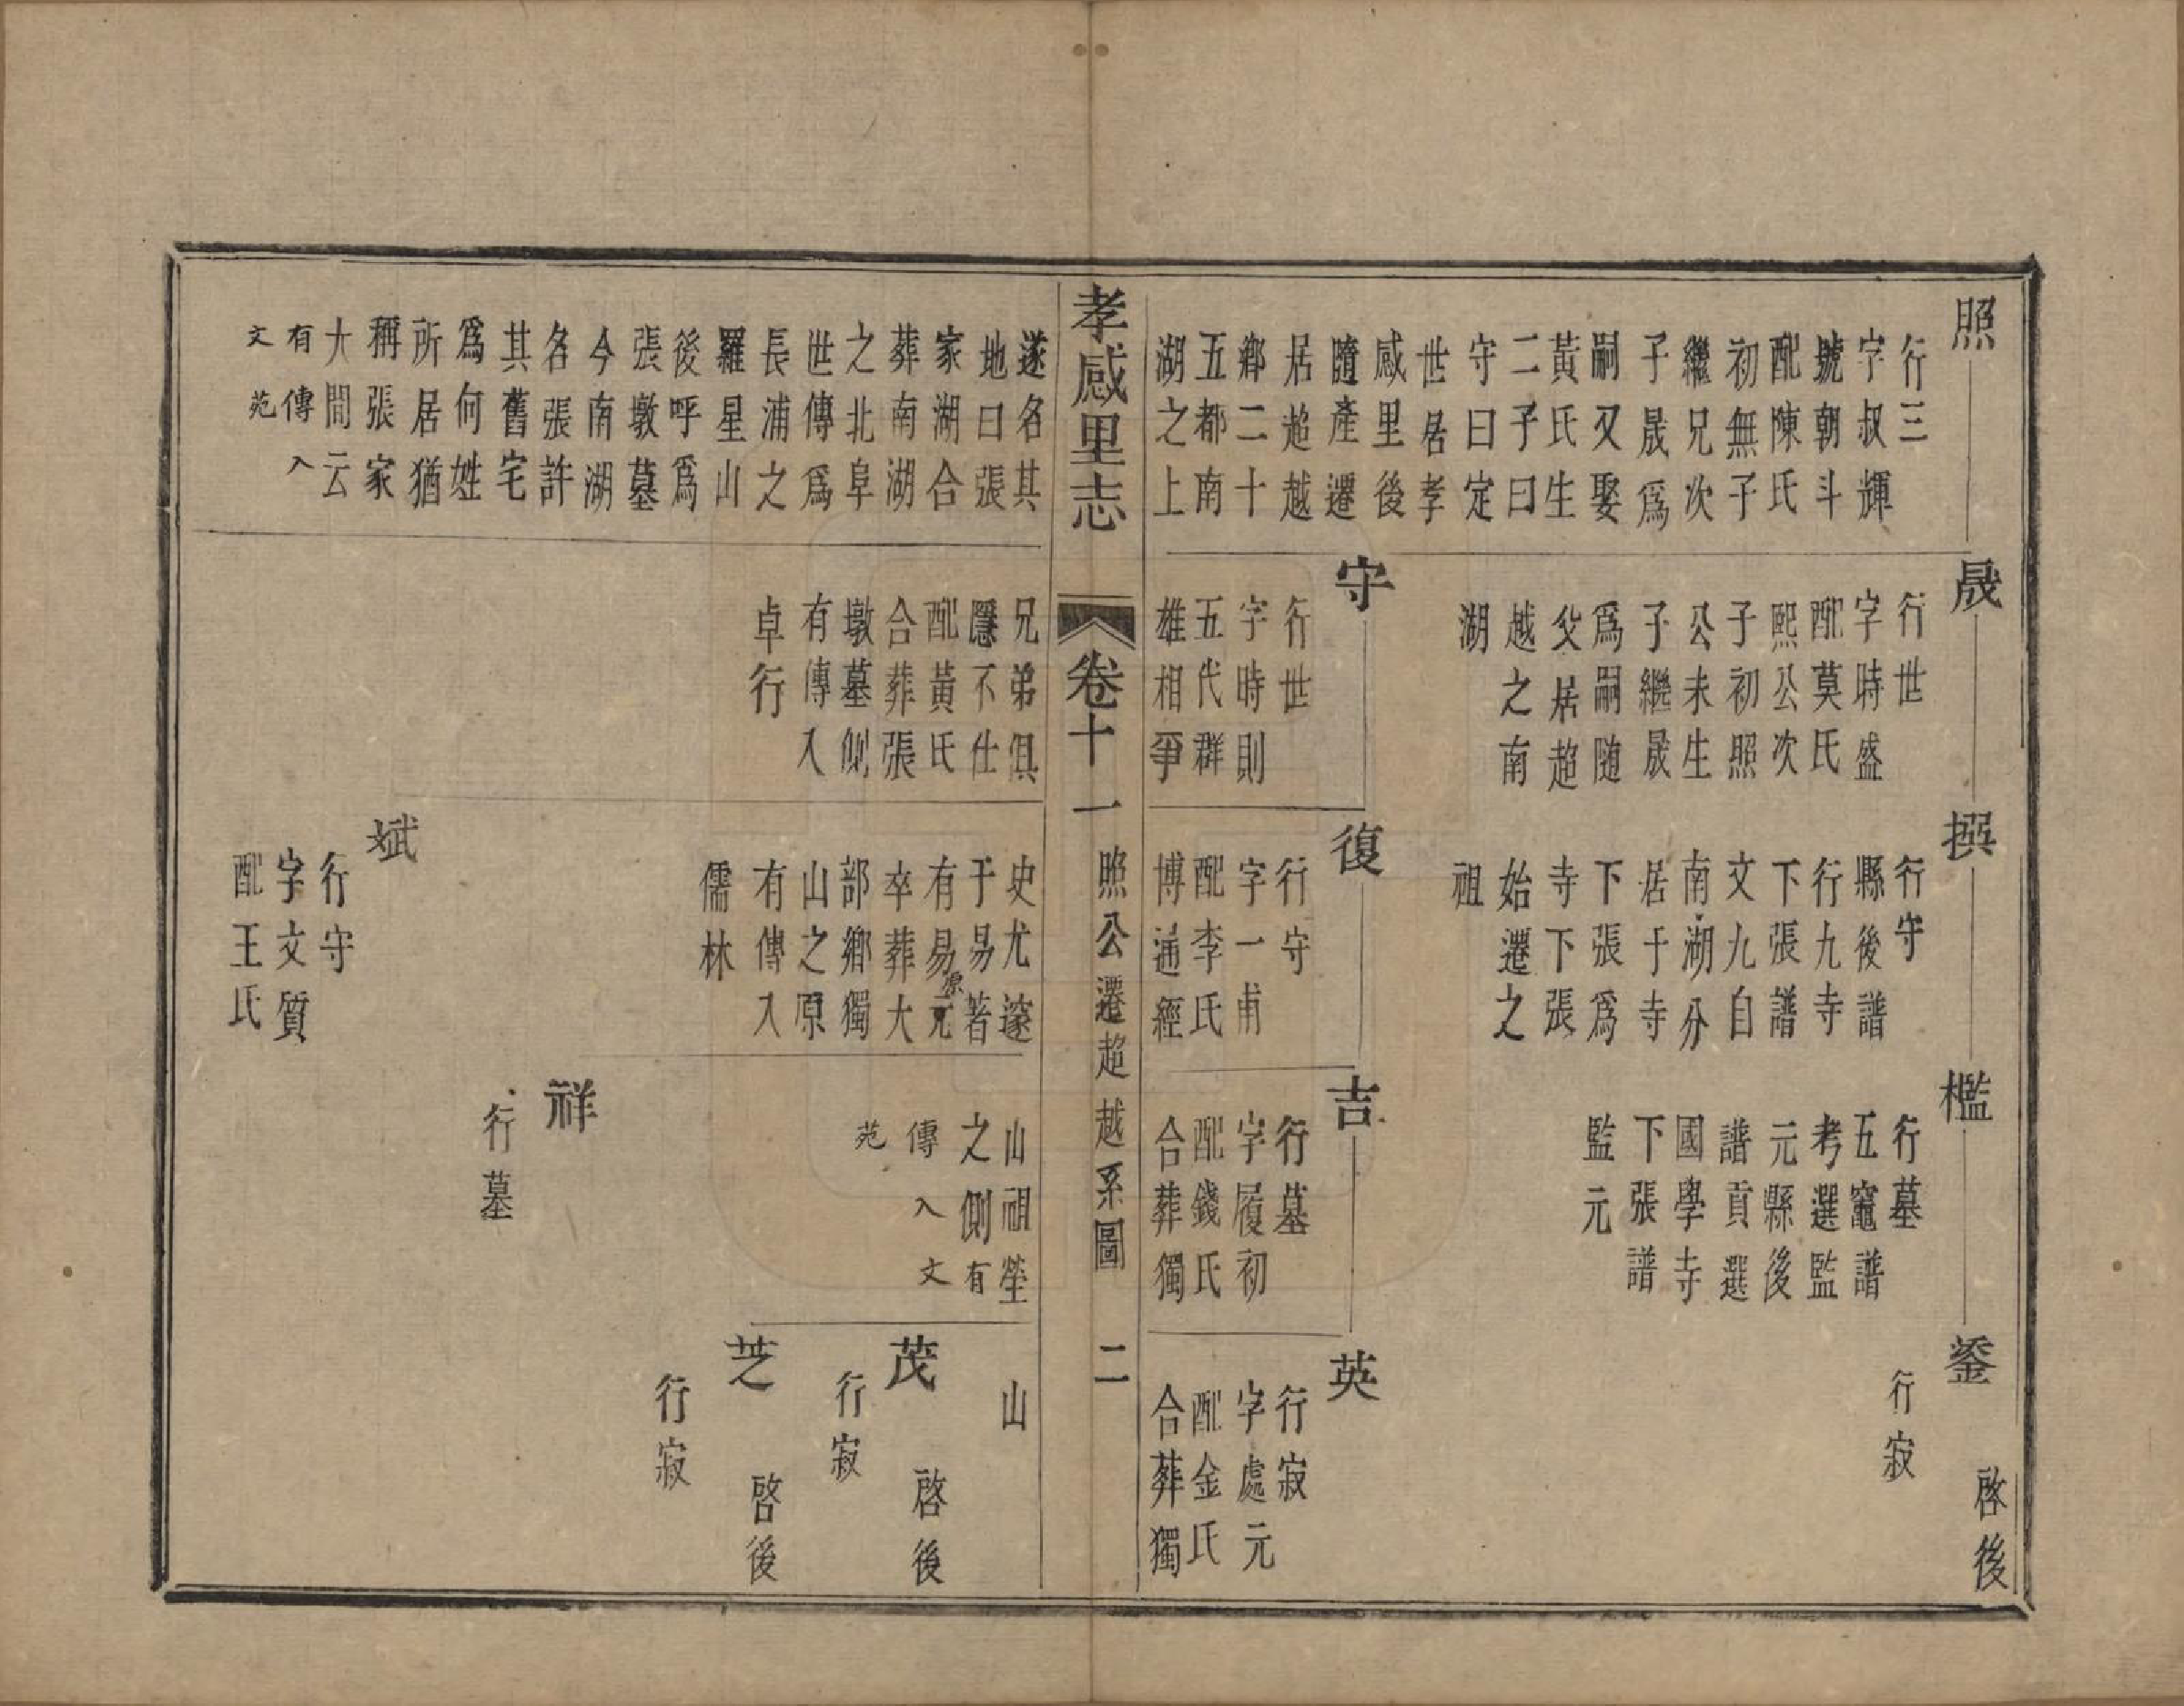 照
行三
字叔輝
號朝斗
配陳氏
初無子
繼兄次
子晟爲
嗣又娶
黃氏生
二子曰
守曰定
世居孝
感里後
隨產遷
居超越
鄉二十
五都南
湖之上
晟
行世
字時盛
配莫氏
熙公次
子初照
公未生
子繼晟
爲嗣随
父居超
越之南
湖
守
行世
字時則
五代群
雄相爭
撰
行守
縣後譜
行九寺
下張譜
文九自
南湖分
居于寺
下張爲
寺下張
始遷之
祖
復
行守
字一甫
配李氏
博通經
檻
行墓
五竈譜
考選監
元縣後
譜貢選
國學寺
下張譜
監元
吉
行墓
字履初
配錢氏
合葬獨
鋆
行寂
啓後
英
行寂
字處元
配金氏
合葬獨
孝感里志
卷十一
照公遷超越系圖
二
遂名其
地曰張
家湖合
葬南湖
之北阜
世傳爲
長浦之
羅星山
後呼爲
張墩墓
今南湖
名張許
其舊宅
爲何姓
所居猶
稱張家
大閒云
有傳入
文苑
兄弟俱
隱不仕
配黃氏
合葬張
墩墓側
有傳入
卓行
史尤邃
于易著
有易元
原
卒葬大
部鄉獨
山之原
有傳入
儒林
斌
行守
字文質
配王氏
山祖塋
之側有
傳入文
苑
祥
行墓
山
茂
行寂
啓後
芝
行寂
啓後